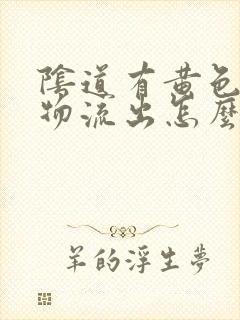 陰道有黃色
物流出怎麼
羊的浮生夢